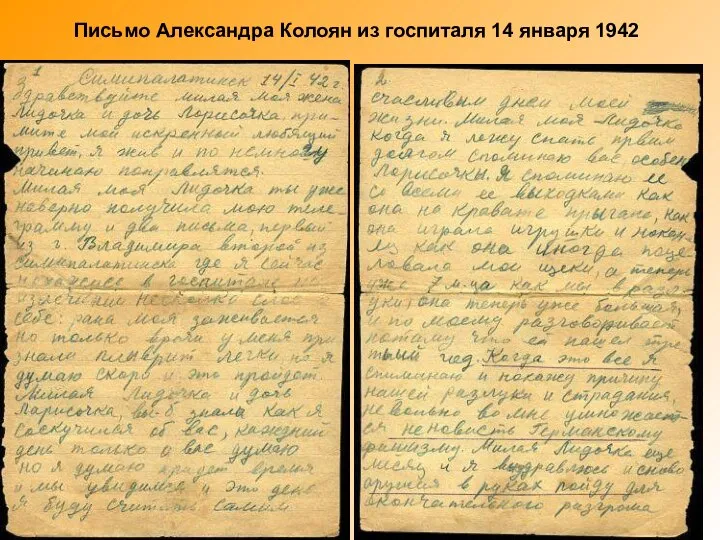 Письмо Александра Колоян из госпиталя 14 января 1942
1 Симипалатинск 14/I 42 г.
Здравствуйте милая моя жена
Лидочка и дочь Ларисочка, при-
мите мой искренный любящий
привет. Я жив и по немногу
начинаю поправлятся.
Милая моя Лидочка ты уже
наверно получила мою теле-
грамму и два письма, первый
из г. Владимира второй из
Симипалатинска где я сейчас
нахожусе в госпитале на
излечинии несколко слов о
себе: рана моя заживается
но только врачи у меня при
знали плеврит легки, но я
думаю скоро и это пройдет
Милая Лидочка и дочь
Ларисочка, вы-б знали как я
соскучился об вас, каждний
день только о вас думаю
но я думаю придет время
и мы увидимся и это день
я буду считать самим
2
счасливым днем моей
жизни. Милая моя Лидочка
когда я лежу спать, првим
долгом споминаю вас особен
Ларисочки. Я споминаю ее
со всеми ее выходками как
она на кравате прыгала, как
она играла игрушки и након-
ец как она иногда поце-
ловала мои щеки, а теперь
уже 7 м-ца как мы в разл-
уки, она теперь уже большая,
и по моему разговоривает
потому что ей пашел тре-
тьий год. Когда это все я
спиминаю и нахожу причину
нашей разлуки и страдания,
не вольно во мне умножает-
ся неновисть Германскому
фашизму. Милая Лидочка еще
месяц и я выздравлюсь и снова
оружия в руках пойду для
окончательного разгрома